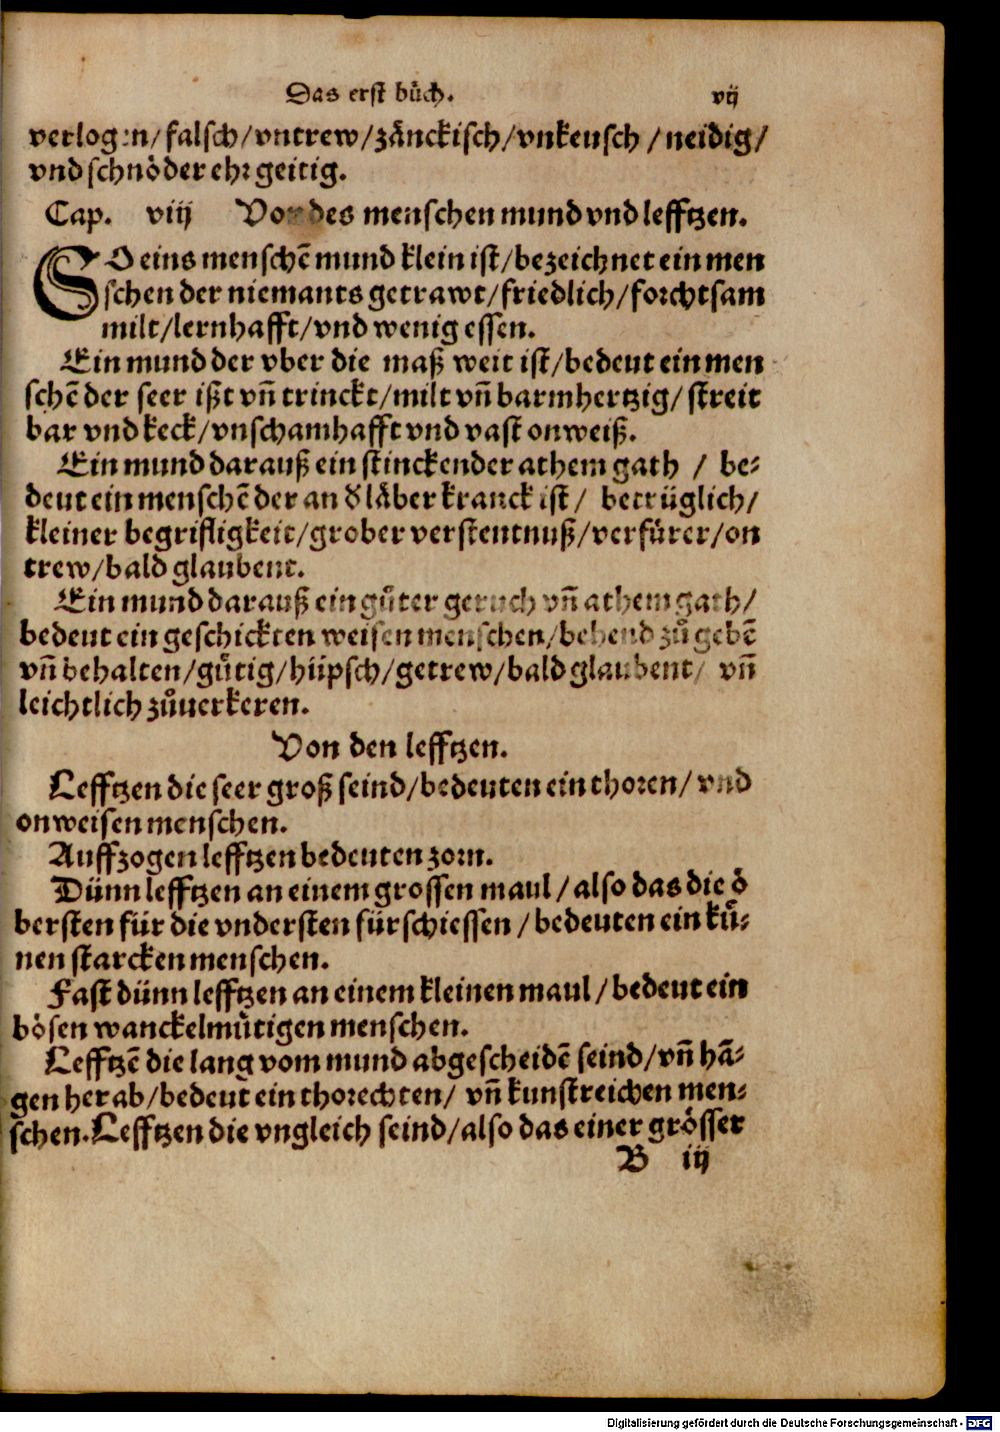 Das erst bůch. vij
verlogen/falsch/vntrew/zänckisch/vnkeusch /neidig/
vnd schnöder ehrgeitig.
Cap. viij Von des menschen mund vnd lefftzen.
SO eins menschẽ mund klein ist/bezeichnet ein men
schen der niemants getrawt/friedlich/forchtsam
milt/lernhafft/vnd wenig essen.
Ein mund der vber die maß weit ist/bedeut ein men
schẽ der seer ißt vñ trinckt/milt vñ barmhertzig/streit
bar vnd keck/vnschamhafft vnd vast onweiß.
Ein mund darauß ein stinckender athem gath / be⸗
deut ein menschẽ der an d̕ läber kranck ist/ betrüglich/
kleiner begrifligkeit/grober verstentnuß/verfürer/on
trew/bald glaubent.
Ein mund darauß ein gůter geruch vñ athem gath/
bedeut ein geschickten weisen menschen/behend zů gebẽ
vñ behalten/gůtig/hüpsch/getrew/bald glaubent/ vñ
leichtlich zůuerkeren.
Von den lefftzen.
Lefftzen die seer groß seind/bedeuten ein thoren/ vnd
onweisen menschen.
Auffzogen lefftzen bedeuten zorn.
Dünn lefftzen an einem grossen maul/also das die ö
bersten für die vndersten fürschiessen/bedeuten ein ků⸗
nen starcken menschen.
Fast dünn lefftzen an einem kleinen maul/bedeut ein
bösen wanckelmůtigen menschen.
Lefftzẽ die lang vom mund abgescheidẽ seind/vñ hã⸗
gen herab/bedeut ein thorechten/ vñ kunstreichen men⸗
schen. Lefftzen die vngleich seind/also das einer grösser
B iij
Digitalisierung gefördert durch die Deutsche Forschungsgemeinschaft - DFG